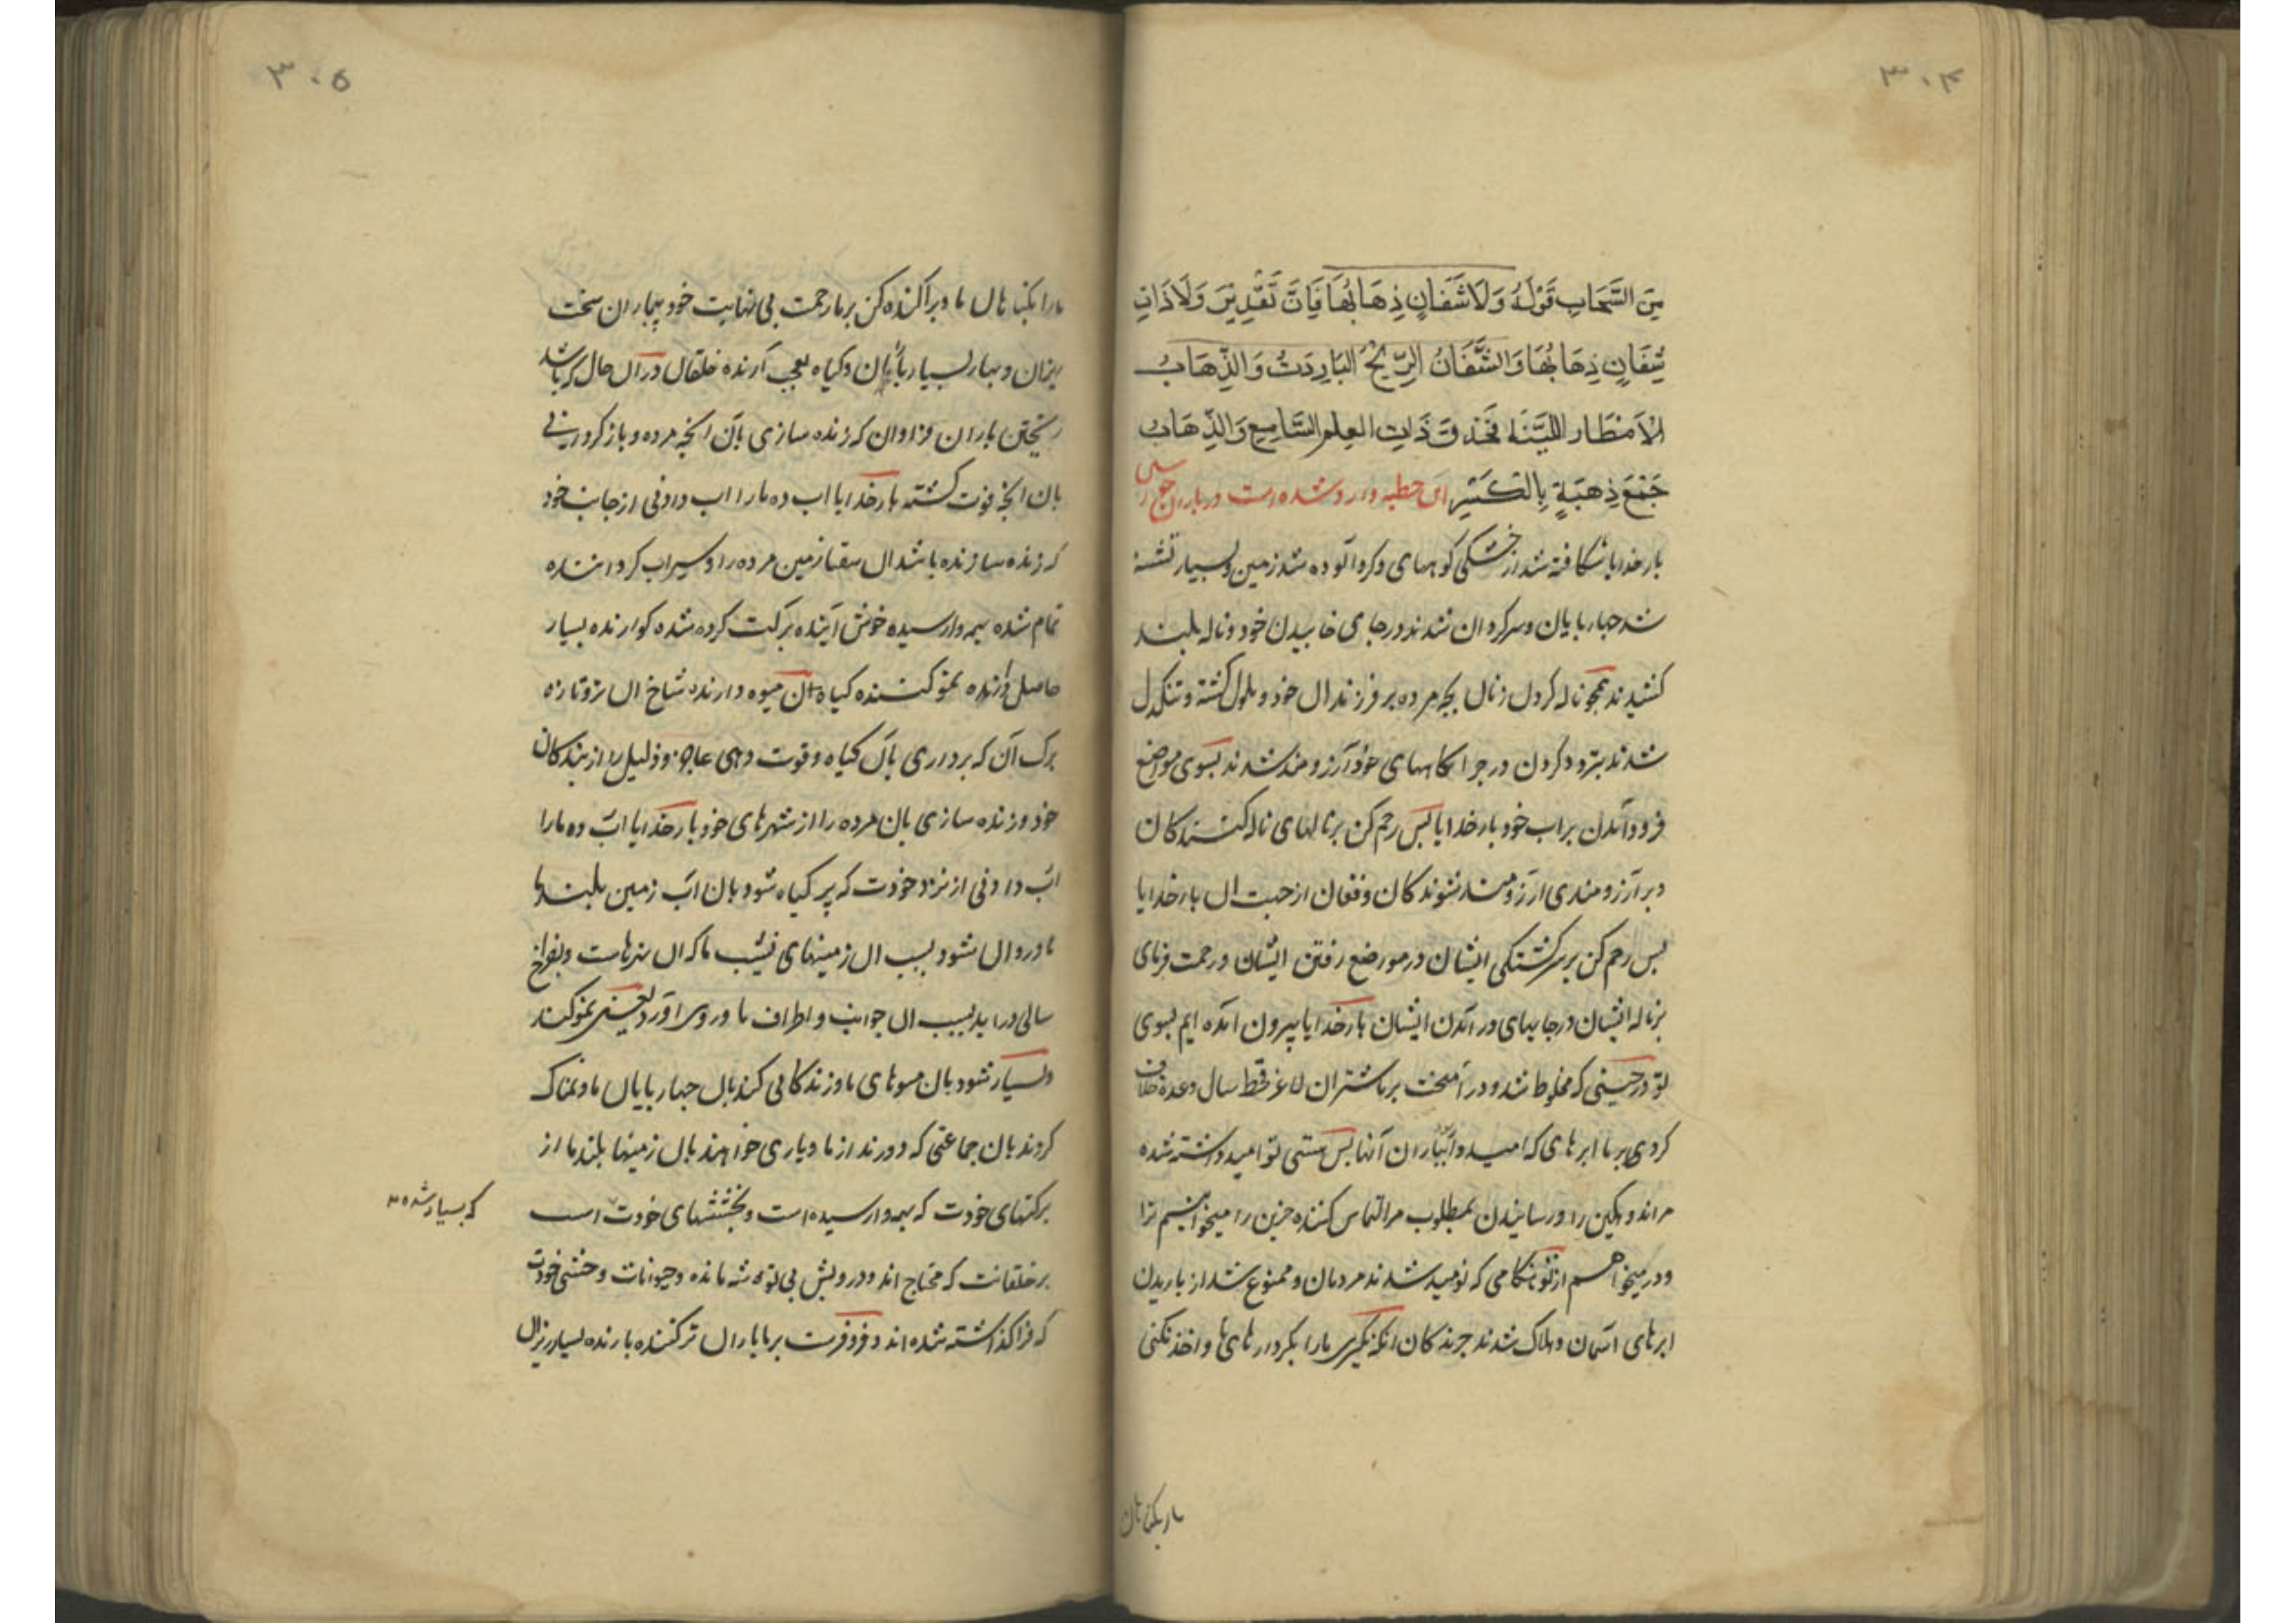 ۳۰۴
مِنَ السَّحَابِ قَوْلُهُ وَلَا شَفَّانٍ ذِهَابُهَا فَإِنَّ تَقْدِيرَهُ وَلَا ذَاتِ
شَفَّانٍ ذِهَابُهَا وَالشَّفَّانُ الرِّيحُ البَارِدَةُ وَالذِّهَابُ
الأَمْطَارُ اللَّيِّنَةُ فَحَذَفَ ذَاتِ لعلم السَّامِعِ وَالذِّهَابُ
جَمْعُ ذِهْبَةٍ بِالْكَسْرِ این خطبه وارد شده است در باران
بارخدایا شکافته شد از خشکی کوههای و کرد آلوده شد زمین و بسیار تشنه
شد چهارپایان و سرکردان شدند در جای خابیدن خود و ناله بلند
کشیدند همچو ناله کردن زنان بچه مرده بر فرزندان خود و ملول کشته و تنکدل
شدند بتردد کردن در چراکاههای خود و آرزومند شدند بسوی مواضع
فرود آمدن بر اب خود بارخدایا پس رحم کن بر نالهای ناله کنندکان
و بر آرزومندی آرزومند شوندکان و فغان از جهت ان بارخدایا
پس رحم کن بر سرکشتکی ایشان در موضع رفتن ایشان و رحمت فرمای
بر ناله ایشان در جایهای در آمدن ایشان بارخدایا بیرون آمده ایم بسوی
تو در حینی که مخلوط شد و در آمیخت بر ما شتران لاغر قحط سال و وعده خلاف
کردی بر ما ابرهای که امیدوار بباران آنها پس هستی تو امید داشته شده
مر اندوهکین را و رسانیدن بمطلوب مر التماس کننده حزین را میخوانیم ترا
و در میخواهیم از تو هنکامی که نومید شدند مردمان و ممنوع شد از باریدن
ابرهای آسمان و هلاک شدند چرندکان انکه نکیری ما را بکردارهای ما و اخذ نکنی
ما را بکناهان
۳۰۵
ما را بکناهان ما و پراکنده کن بر ما رحمت بی نهایت خود بباران سخت
ریزان و بهار بسیار باران و کیاه بعجب آرنده خلقان در ان حال که باشد
ریختن باران فراوان که زنده سازی بآن آنچه مرده و باز کردانی
بان آنچه فوت کشته بارخدایا اب ده ما را اب دادنی از جانب خود
که زنده سازنده باشد ان سقیا زمین مرده را و سیراب کرداننده
تمام شده همه را رسیده خوش آینده برکت کرده شده کوارنده بسیار
حاصل دارنده نمو کننده کیاه ان میوه دارنده شاخ ان تر و تازه
برک آن که برداری بآن کیاه و قوت دهی عاجز و ذلیل را از بندکان
خود و زنده سازی بان مرده را از شهرهای خود بارخدایا اب ده ما را
اب دادنی از نزد خودت که پر کیاه شود بان اب زمین بلندها
ما و روان شود بسبب ان زمینهای نشیب ما که ان نهرهاست و بفراخ
سالی در اید بسبب ان جوانب و اطراف ما و روی آورد یعنی نمو کند
و بسیار شود بان میوهای ما و زندکانی کند بان چهارپایان ما و نمناک
کردند بان جماعتی که دورند از ما و یاری خواهند بان زمینها بلند ما از
برکتهای خودت که همه را رسیده است و بخششهای خودت است
که بسیار شده
بر خلقانت که محتاج اند و درویش بی توشه مانده و حیوانات وحشی خودت
که فرا کذاشته شده اند و فرو فرست بر ما باران تر کننده بارنده بسیار ریزان